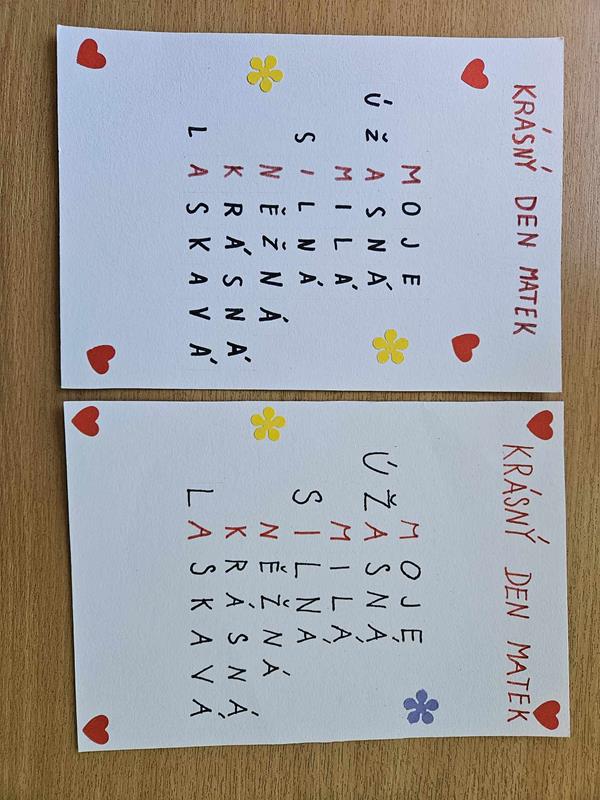 KRÁSNÝ DEN MATEK
MOJE
ÚŽASNÁ
MILÁ
SILNÁ
NĚŽNÁ
KRÁSNÁ
LASKAVÁ
KRÁSNÝ DEN MATEK
MOJE
ÚŽASNÁ
MILÁ
SILNÁ
NĚŽNÁ
KRÁSNÁ
LASKAVÁ